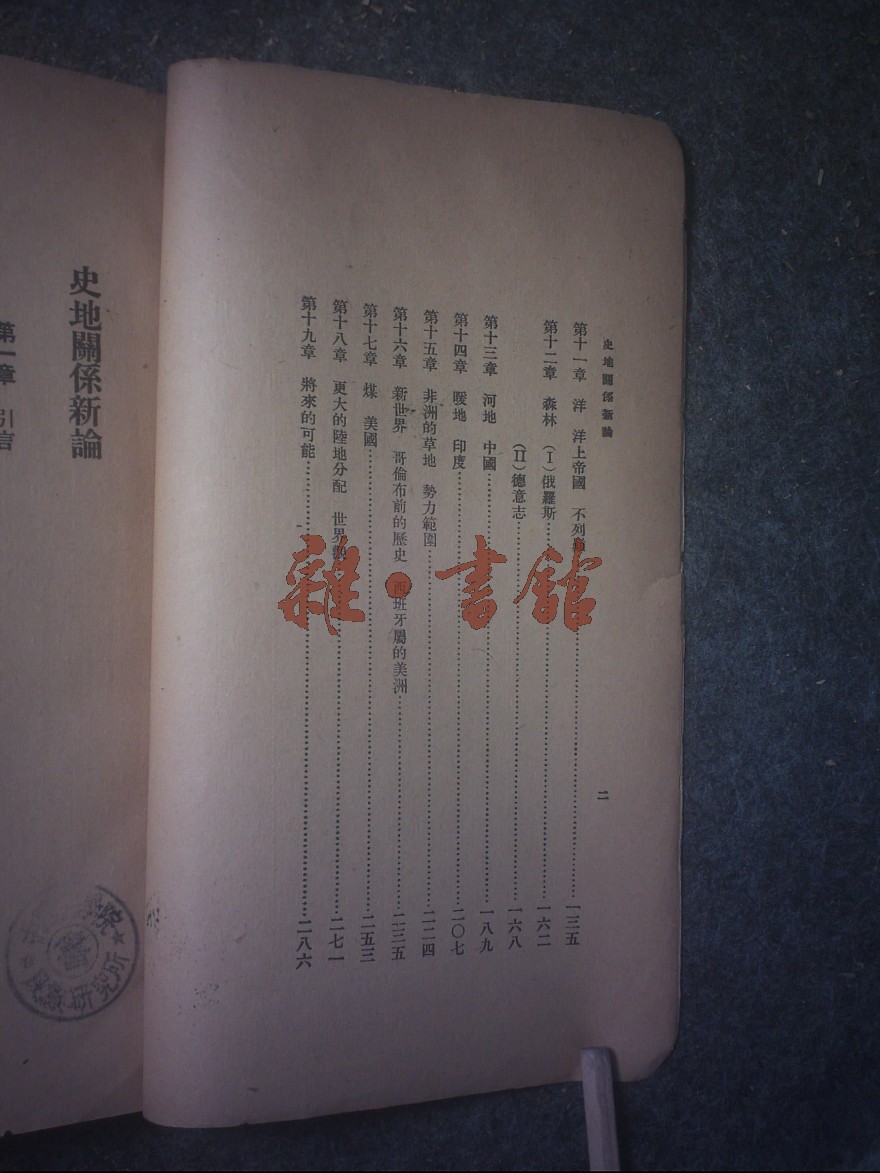 史地關係新論
二
第十一章 洋 洋上帝國 不列 一三五
第十二章 森林 (I)俄羅斯 一六二
(II)德意志 一六八
第十三章 河地 中國 一八九
第十四章 暖地 印度 二〇七
第十五章 非洲的草地 勢力範圍 二二四
第十六章 新世界 哥倫布前的歷史 西班牙屬的美洲 二三五
第十七章 煤 美國 二五三
第十八章 更大的陸地分配 世界觀 二七一
第十九章 將來的可能 二八六
雜·書館
史地關係新論
第一章 引言
研究所